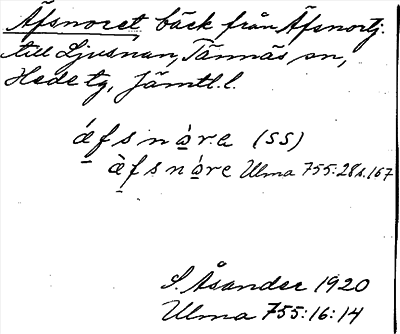 Äfsnoret bäck från Äfsnortj.
till Ljusnan, Tännäs sn,
Hede tg, Jämtl.l.
ǽfsnǫre (SS)
æ̀fsnǫ́re Ulma 755:28 s.167
S. Åsander 1920
Ulma 755:16:14